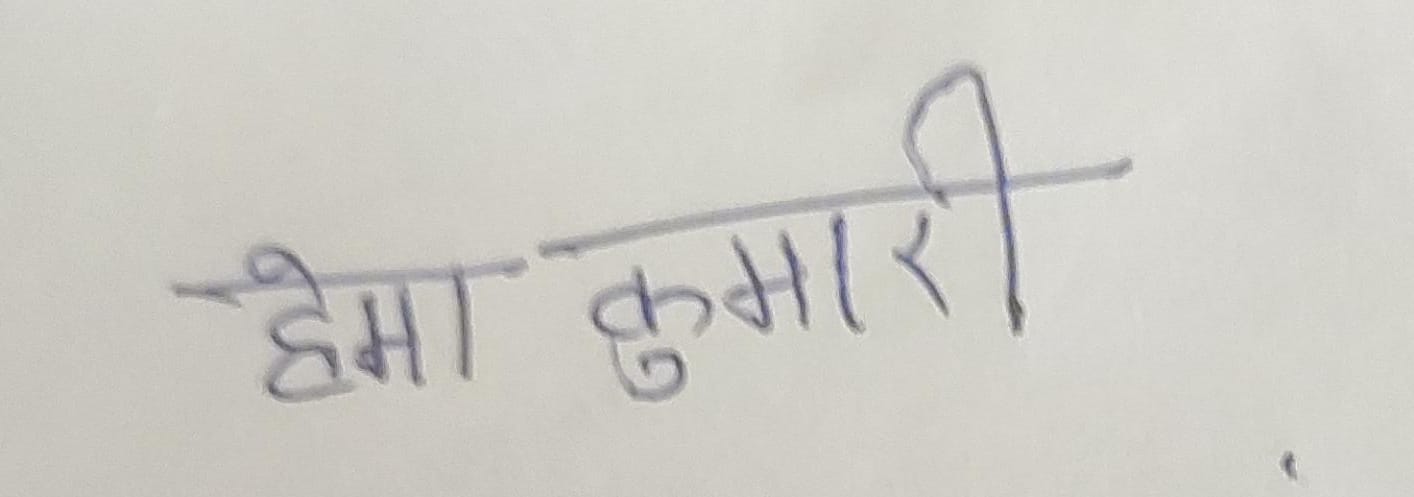 हेमा कुमारी